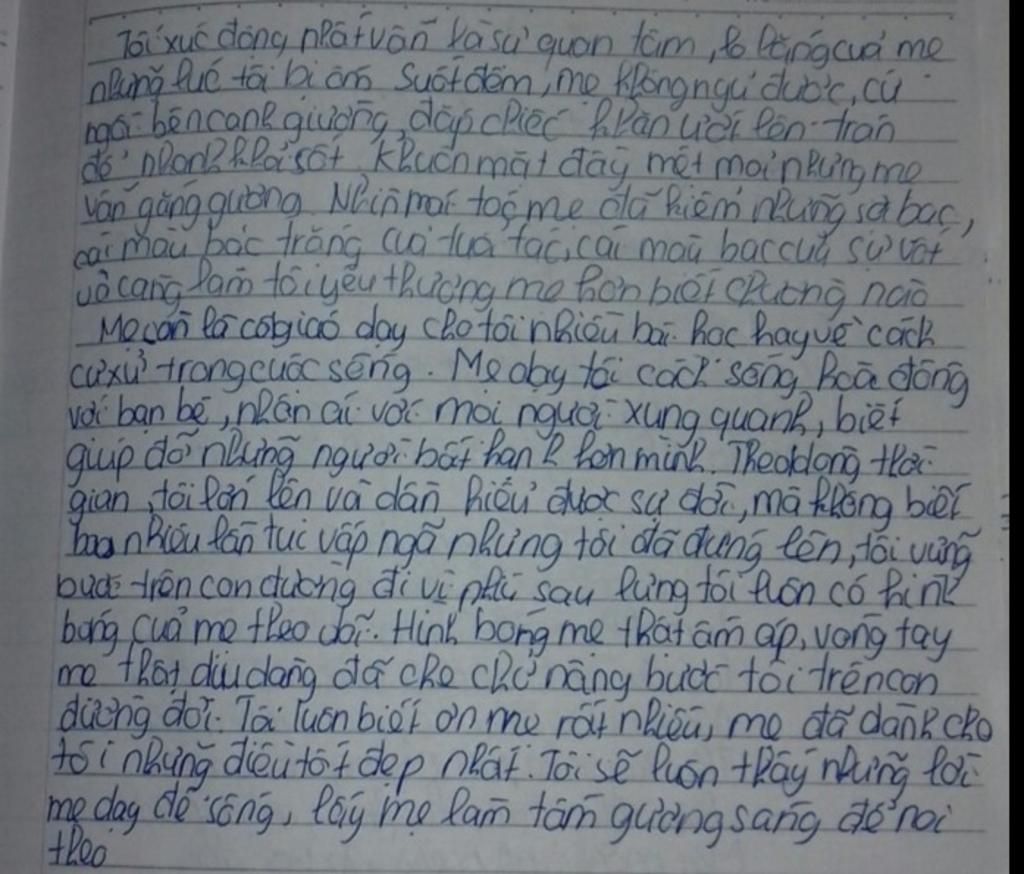 Tôi xúc động nhất vẫn là sự quan tâm, lo lắng của mẹ
những lúc tôi bị ốm Suốt đêm, mẹ không ngủ được, cứ
ngồi bên cạnh giường, đắp chiếc khăn ướt lên trán
để nhanh khỏi sốt. Khuôn mặt đầy mệt mỏi nhưng mẹ
vẫn gắng gượng. Nhìn mái tóc mẹ đã hiếm những sợi bạc,
cái màu bạc trắng của tuổi tác, cái màu bạc của sự vất
vả càng làm tôi yêu thương mẹ hơn biết chừng nào
Mẹ còn là cô giáo dạy cho tôi nhiều bài học hay về cách
cư xử trong cuộc sống. Mẹ dạy tôi cách sống hoà đồng
với bạn bè, nhân ái với mọi người xung quanh, biết
giúp đỡ những người bất hạnh hơn mình. Theo dòng thời
gian, tôi lớn lên và dần hiểu được sự đời, mà không biết
bao nhiêu lần tui vấp ngã nhưng tôi đã đứng lên, tôi vững
bước trên con đường đi vì phía sau lưng tôi luôn có hình
bóng của mẹ theo dõi. Hình bóng mẹ thật ấm áp, vòng tay
mẹ thật dịu dàng đã che chở nâng bước tôi trên con
đường đời. Tôi luôn biết ơn mẹ rất nhiều, mẹ đã dành cho
tôi những điều tốt đẹp nhất. Tôi sẽ luôn thấy những lời
mẹ dạy để sống, lấy mẹ làm tấm gương sáng để noi
theo